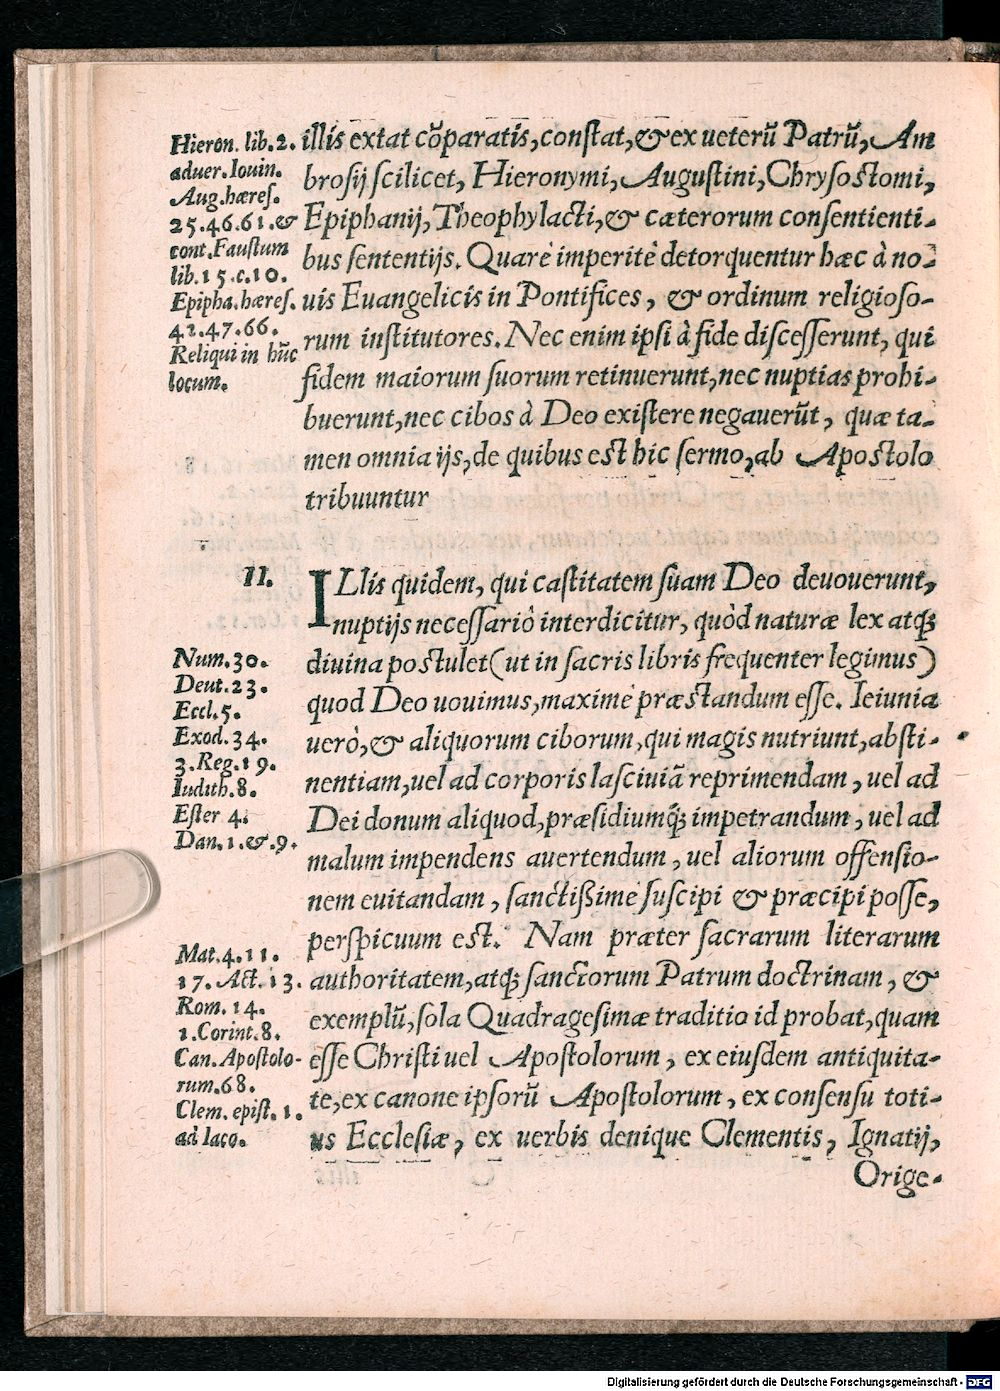 Hieron. lib. 2.
aduer. Iouin.
Aug. hæres.
25.46.61. &
cont. Faustum
lib. 15. c. 10.
Epipha. hæres.
42.47.66.
Reliqui in hūc
locum.
illis extat cōparatis, constat, & ex ueterū Patrū, Am
brosij scilicet, Hieronymi, Augustini, Chrysostomi,
Epiphanij, Theophylacti, & cæterorum consentienti-
bus sententijs. Quare imperitè detorquentur hæc à no-
uis Euangelicis in Pontifices, & ordinum religioso-
rum institutores. Nec enim ipsi à fide discesserunt, qui
fidem maiorum suorum retinuerunt, nec nuptias prohi-
buerunt, nec cibos à Deo existere negauerūt, quæ ta-
men omnia ijs, de quibus est hic sermo, ab Apostolo
tribuuntur
11.
Num. 30.
Deut. 23.
Eccl. 5.
Exod. 34.
3. Reg. 19.
Iudith. 8.
Ester 4.
Dan. 1. & .9.
Mat. 4. 11.
17. Act. 13.
Rom. 14.
1. Corint. 8.
Can. Apostolo-
rum. 68.
Clem. epist. 1.
ad Iaco.
ILlis quidem, qui castitatem suam Deo deuouerunt,
nuptijs necessariò interdicitur, quòd naturæ lex atq;
diuina postulet (ut in sacris libris frequenter legimus)
quod Deo uouimus, maximè præstandum esse. Ieiunia
uerò, & aliquorum ciborum, qui magis nutriunt, absti-
nentiam, uel ad corporis lasciuiā reprimendam, uel ad
Dei donum aliquod, præsidiumq; impetrandum, uel ad
malum impendens auertendum, uel aliorum offensio-
nem euitandam, sanctißimè suscipi & præcipi posse,
perspicuum est. Nam præter sacrarum literarum
authoritatem, atq; sanctorum Patrum doctrinam, &
exemplū, sola Quadragesimæ traditio id probat, quam
esse Christi uel Apostolorum, ex eiusdem antiquita-
te, ex canone ipsorū Apostolorum, ex consensu toti-
us Ecclesiæ, ex uerbis denique Clementis, Ignatij,
Orige-
Digitalisierung gefördert durch die Deutsche Forschungsgemeinschaft - DFG